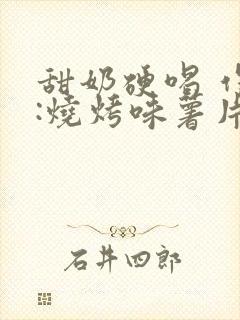 甜奶硬唱
:燒烤味薯片
石井四郎